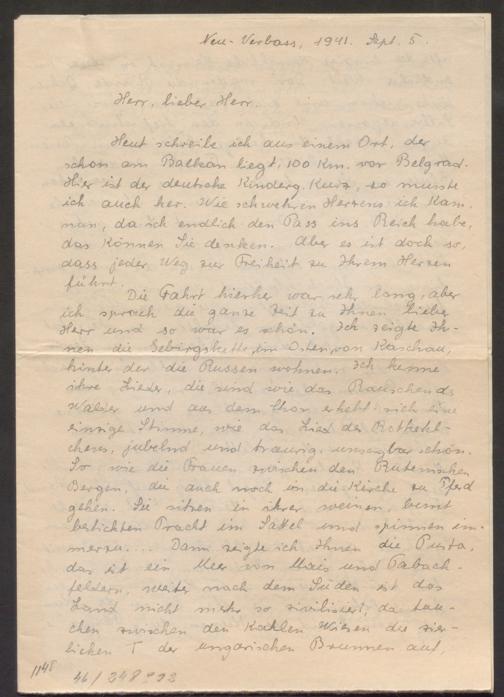 Neu-Verbass, 1941. Sept. 5.
Herr, lieber Herr.
Heut schreibe ich aus einem Ort, der
schon am Balkan liegt, 100 Km. vor Belgrad.
Hier ist der deutsche Kinderg. Kurs, so musste
ich auch her. Wie schweren Herzens ich kam,
nun, da ich endlich den Pass ins Reich habe,
das können Sie denken. Aber es ist doch so,
dass jeder Weg zur Freiheit zu Ihrem Herzen
führt.
Die Fahrt hierher war sehr lang, aber
ich sprach die ganze Zeit zu Ihnen lieber
Herr und so war es schön. Ich zeigte Ih-
nen die Gebirgskette, im Osten, von Kaschau,
hinter der die Russen wohnen. Ich kenne
ihre Lieder, die sind wie das Rauschen d.
Wälder und aus dem Chor erhebt sich eine
einzige Stimme, wie das Lied des Rotkehl-
chens, jubelnd und traurig, unsagbar schön.
So wie die Frauen zwischen den Rutenischen
Bergen, die auch noch in die Kirche zu Pferd
gehen. Sie sitzen in ihrer weissen, bunt
bestickten Pracht im Sattel und spinnen im-
merzu.... Dann zeigte ich Ihnen die Pusta,
das ist ein Meer von Mais und Tabach-
feldern, weiter nach dem Süden ist das
Land nicht mehr so zivilisiert, da tau-
chen zwischen den kahlen Wiesen die zier-
lichen T der ungarischen Brunnen auf,
1148
46/348